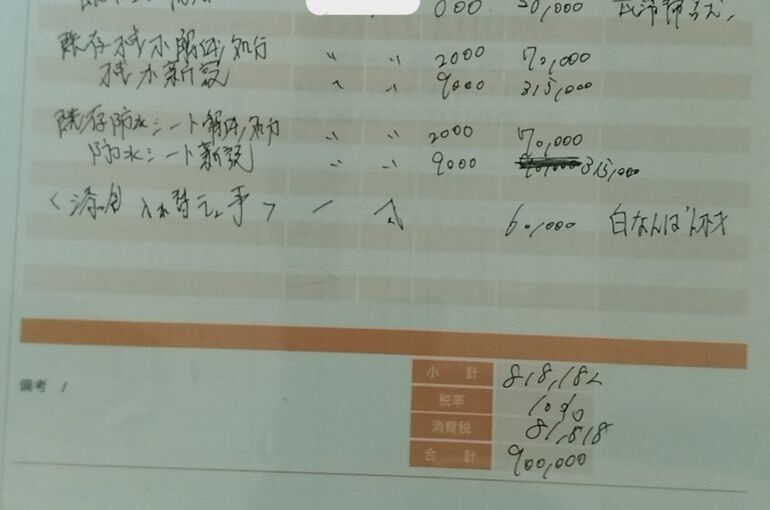 000 20,000
既存桟木解体,処分 〃 〃 2000 70,000
桟木新設 〃 〃 9000 315,000
既存防水シート解体,処分 〃 〃 2000 70,000
防水シート新設 〃 〃 9000 315,000
一 式 60,000 白なんばん
小計 818,182
税率 10%
消費税 81,818
合計 900,000
備考